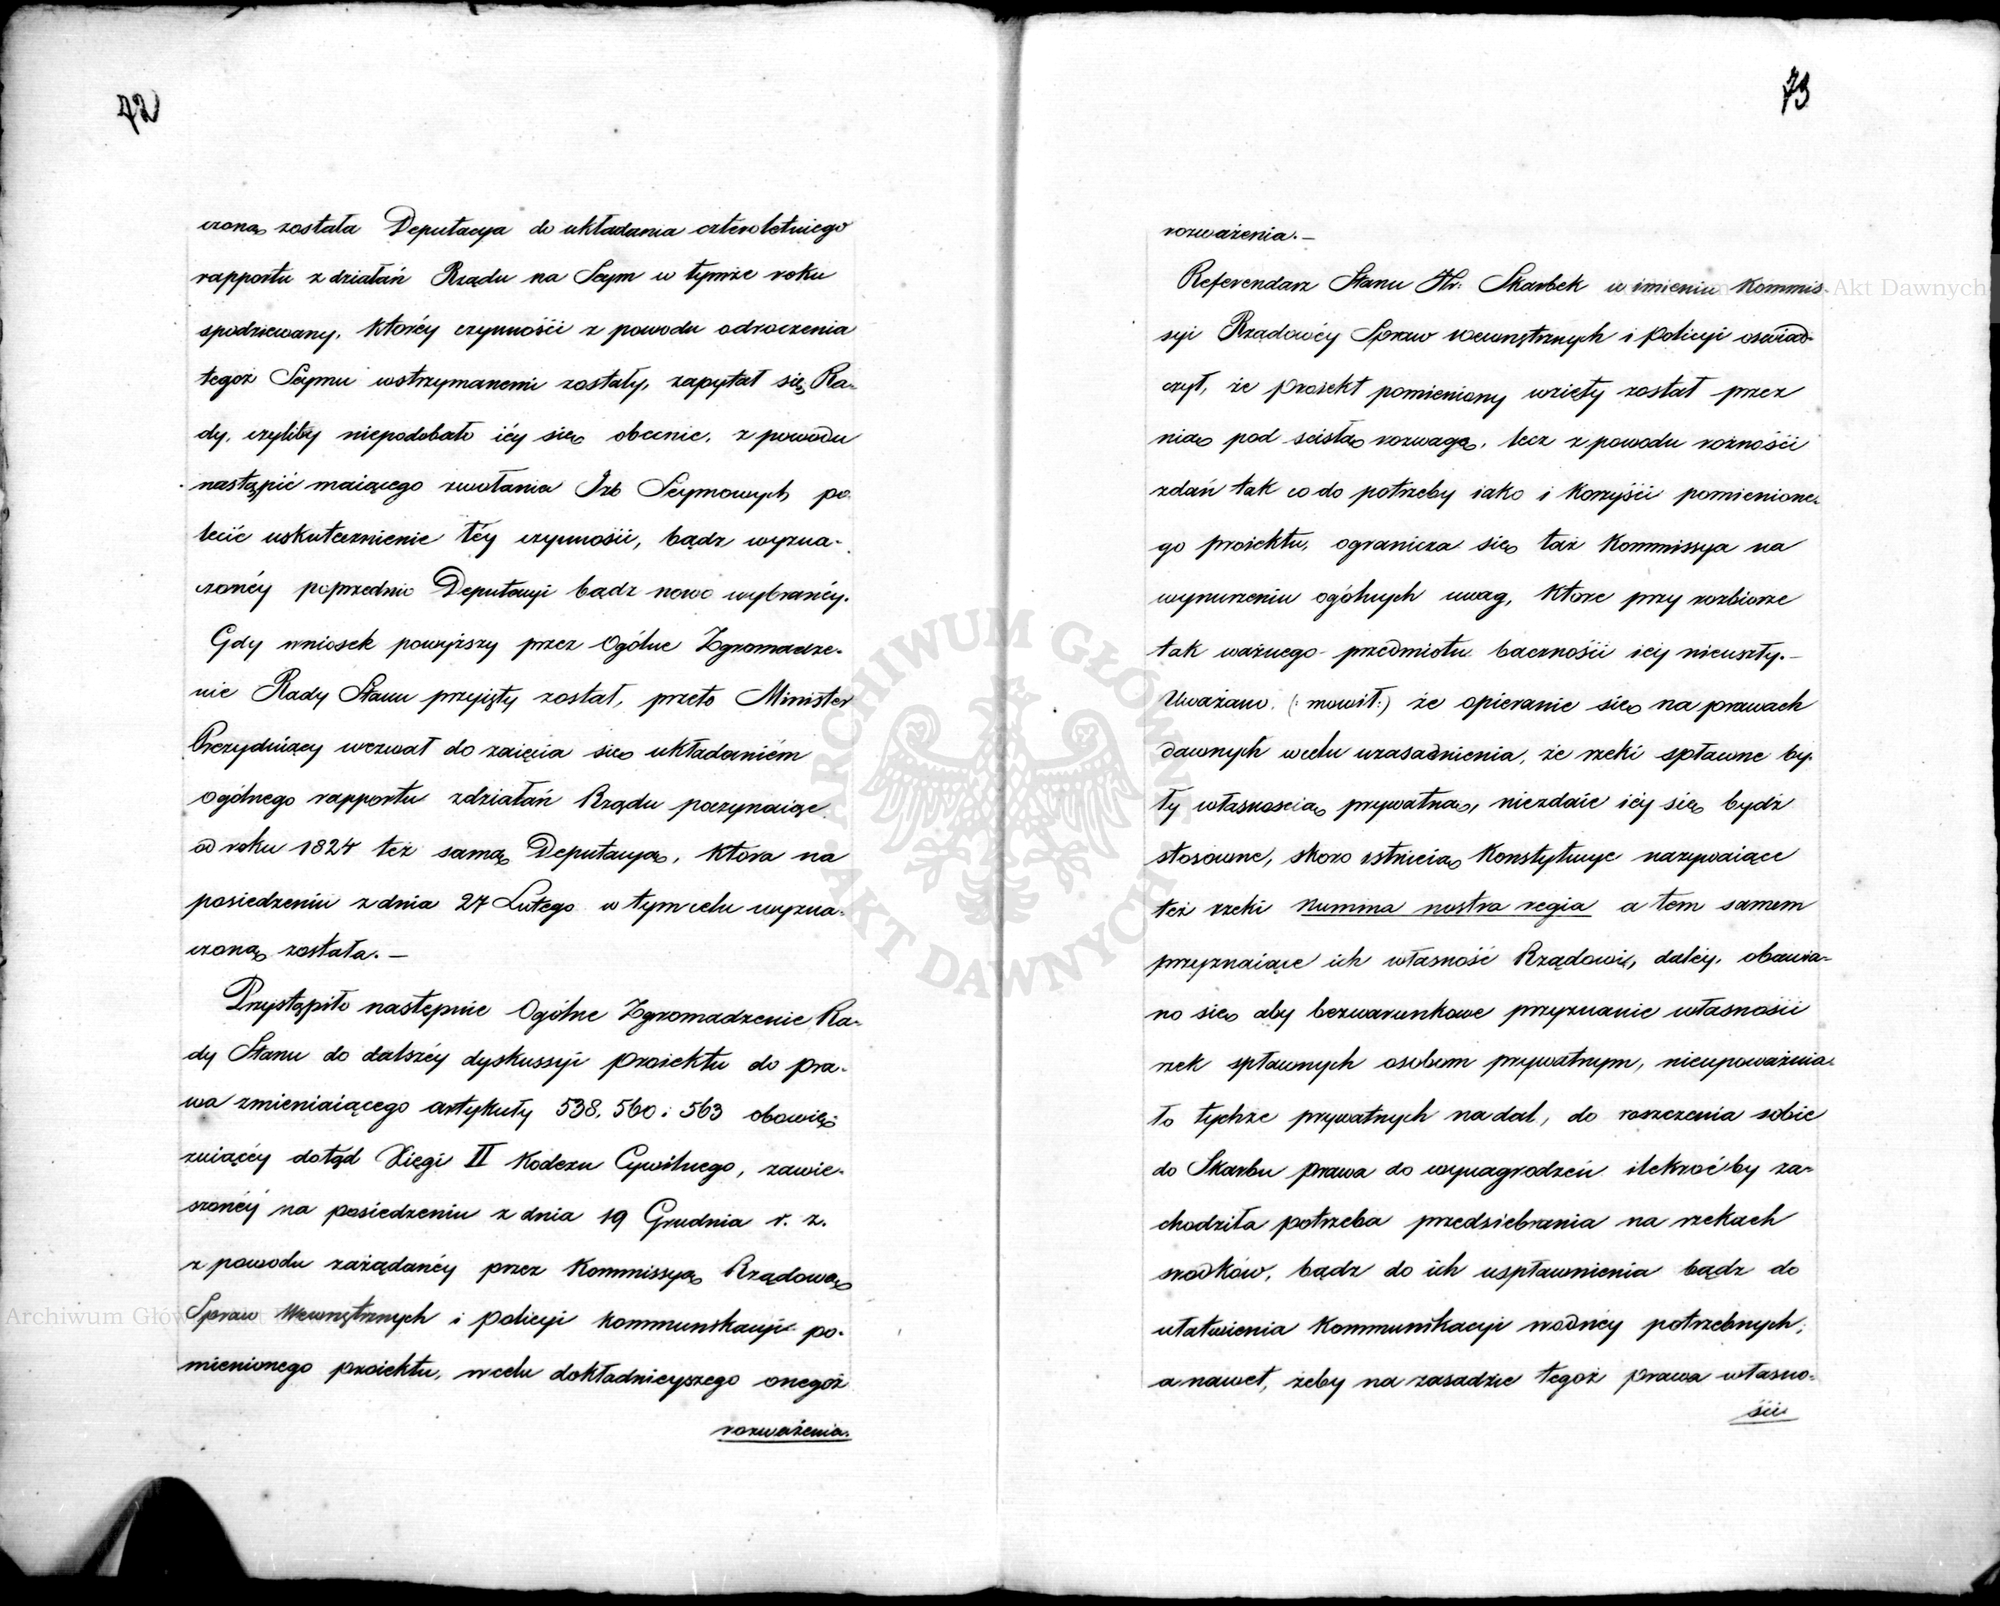 72
czoną została Deputacya do układania czteroletniego
rapportu z działań Rządu na Seym w tymże roku
spodziewany, któréy czynności z powodu odroczenia
tegoż Seymu wstrzymanemi zostały, zapytał się Ra-
dy, czyliby niepodobało iéy się obecnie, z powodu
nastąpić maiącego zwołania Izb Seymowych po-
lecić uskutecznienie téy czynności, bądz wyzna-
czonéy poprzednio Deputacyi bądz nowo wybranéy.
Gdy wniosek powyższy przez Ogólne Zgromadze-
nie Rady Stanu przyięty został, przeto Minister
Prezyduiący wezwał do zaięcia się układaniém
ogólnego rapportu z działań Rządu poczynaiąc
od roku 1824 też samą Deputacyą, która na
posiedzeniu z dnia 27 Lutego w tym celu wyzna-
czoną została. —
Przystąpiło następnie Ogólne Zgromadzenie Ra-
dy Stanu do dalszéy dyskussyi proiektu do pra-
wa zmieniaiącego artykuły 538, 560 i 563 obowią-
zuiącéy dotąd Xięgi II Kodexu Cywilnego, zawie-
szonéy na posiedzeniu z dnia 19 Grudnia r. z.
z powodu zażądanéy przez Kommissyą Rządową
Spraw Wewnętrznych i Policyi kommunikacyi po-
mienionego proiektu, w celu dokładnieyszego onegoż
rozważenia.
73
rozważenia. —
Referendarz Stanu Hr. Skarbek w imieniu Kommis-
syi Rządowéy Spraw Wewnętrznych i Policyi oświad-
czył, że proiekt pomieniony wzięty został przez
nią pod scisłą rozwagę, lecz z powodu rożności
zdań tak co do potrzeby iako i korzyści pomienione-
go proiektu, ogranicza się taż Kommissya na
wynurzeniu ogólnych uwag, które przy rozbiorze
tak ważnego przedmiotu baczności iéy nieuszły. —
Uważano (: mowił :) że opieranie się na prawach
dawnych w celu uzasadnienia, że rzeki spławne by-
ły własnoscią prywatną, niezdaie iéy się bydź
stosowne, skoro istnieią Konstytucye nazywaiące
też rzeki Numina nostra regia a tem samem
przyznaiące ich własność Rządowi, daléy, obawia-
no się aby bezwarunkowe przyznanie własności
rzek spławnych osobom prywatnym, nieupoważnia-
ło tychże prywatnych nadal, do roszczenia sobie
do Skarbu prawa do wynagrodzeń ilekroć by za-
chodziła potrzeba przedsiebrania na rzekach
srodków, bądz do ich uspławnienia bądz do
ułatwienia Kommunikacyi wodnéy potrzebnych;
a nawet, żeby na zasadzie tegoż prawa własno-
ści
ARCHIWUM GŁÓWNE AKT DAWNYCH
Archiwum Główne Akt Dawnych
Akt Dawnych